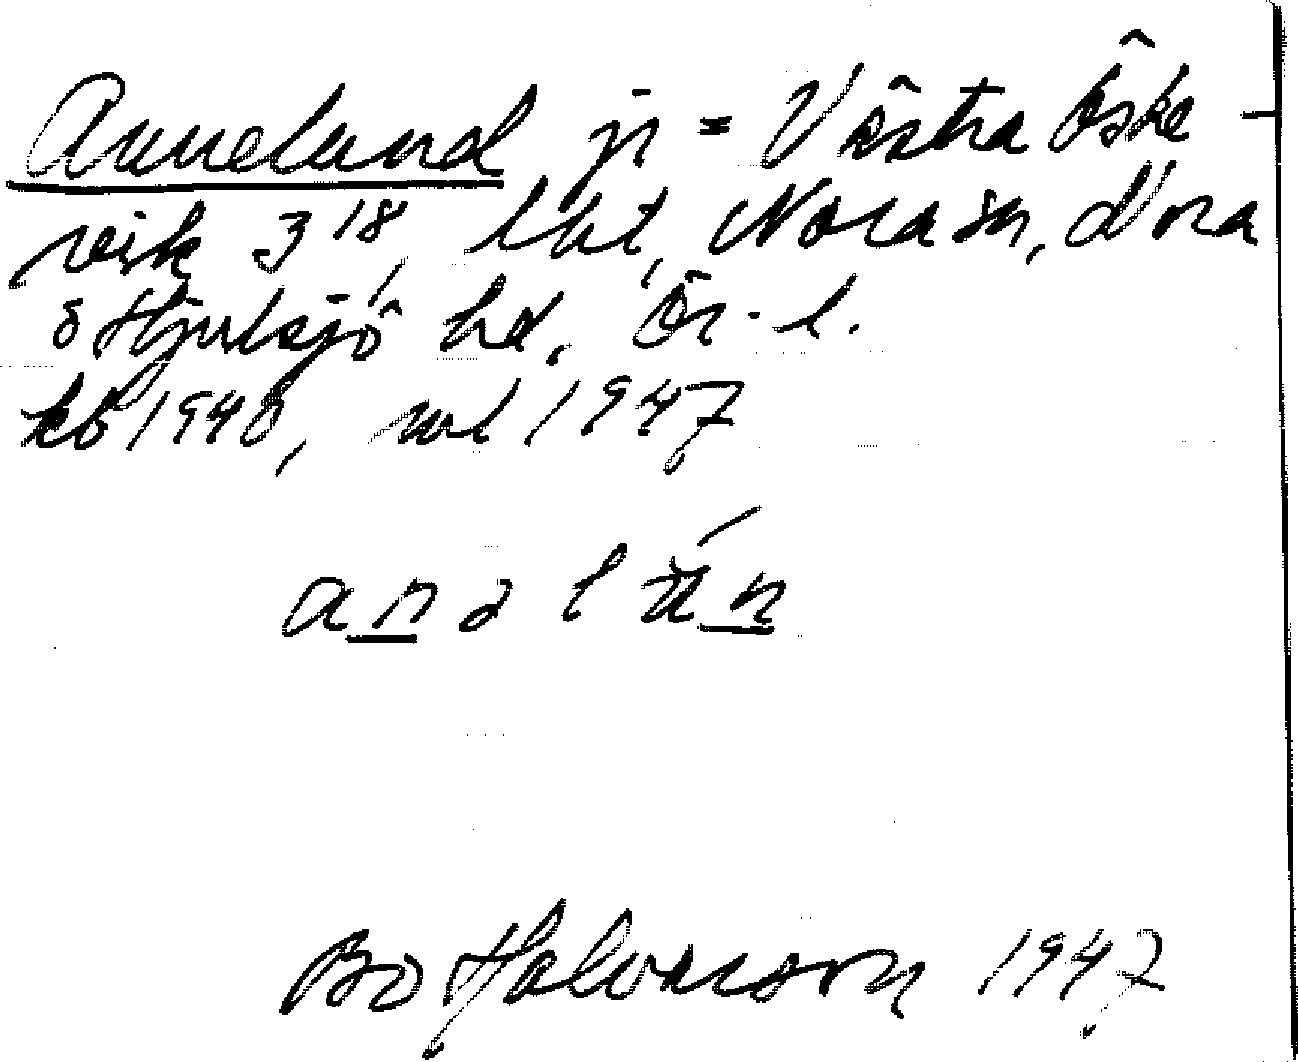 Annelund jr = Västra Öske-
vik 3¹⁸, lht, Nora sn, Nora
o Hjulsjö hd, Ör. l.
kb 1940, ml 1947
analún
Bo Halvarson 1947